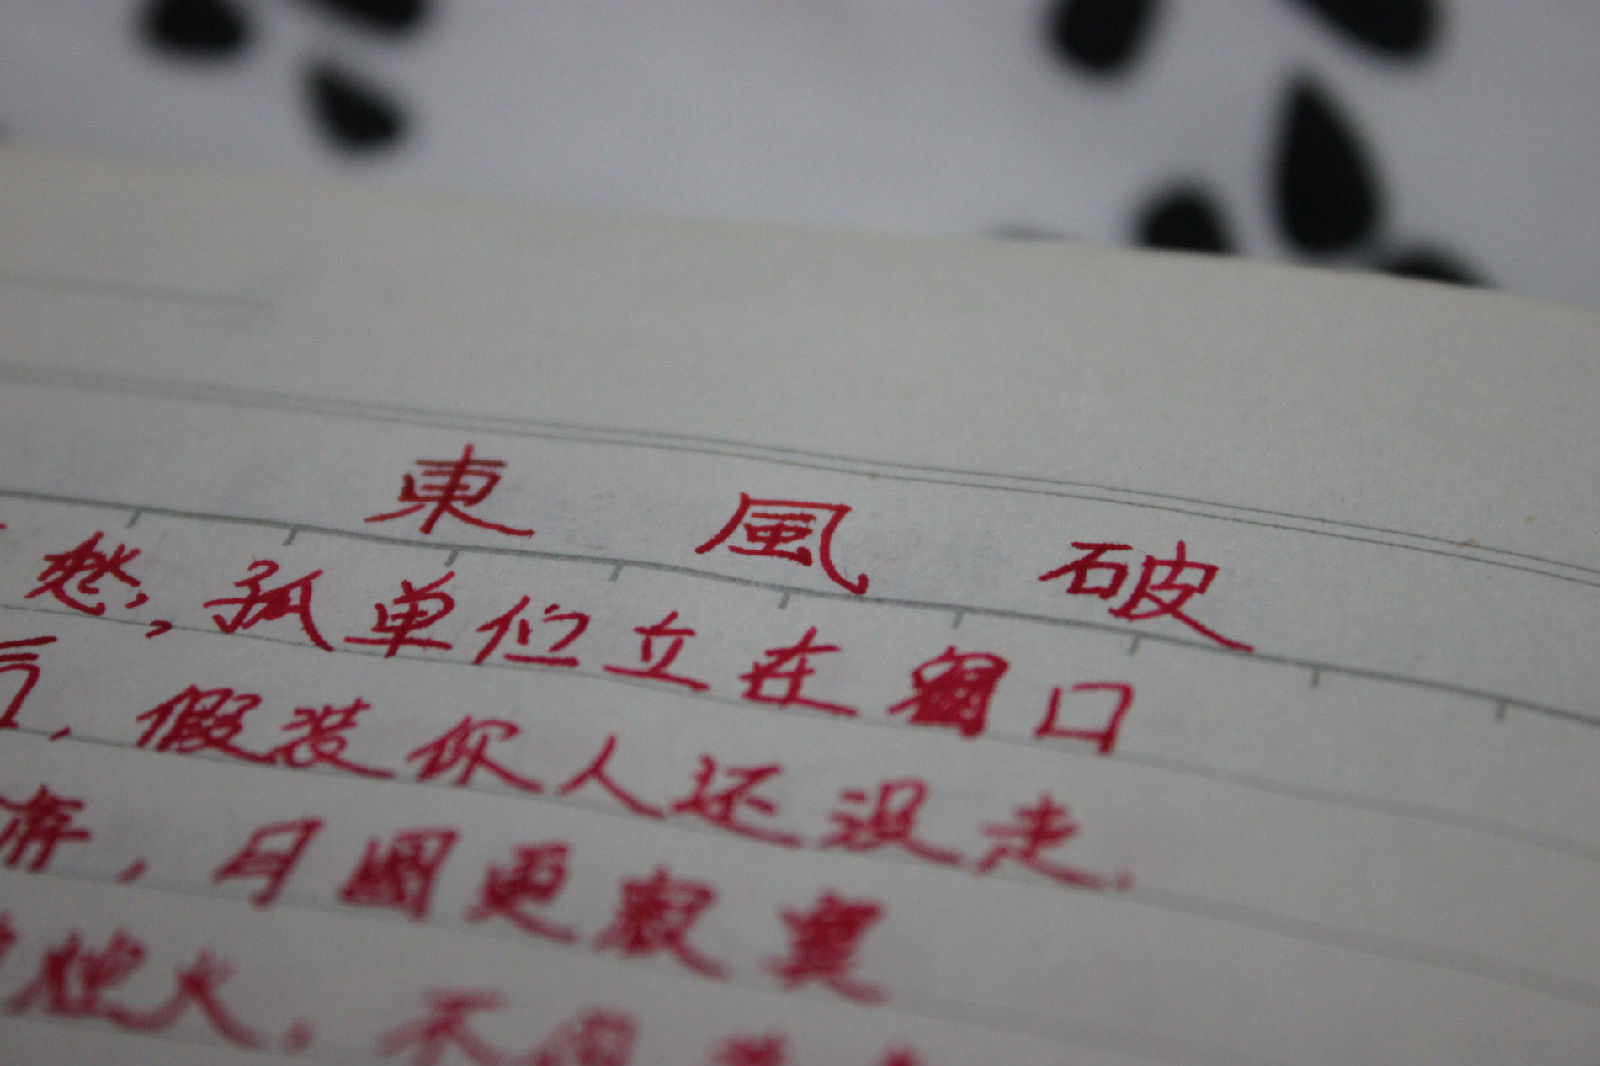 東風破
愁,孤单伫立在窗口
后,假装你人还没走.
游,月圆更寂寞
烛火,不